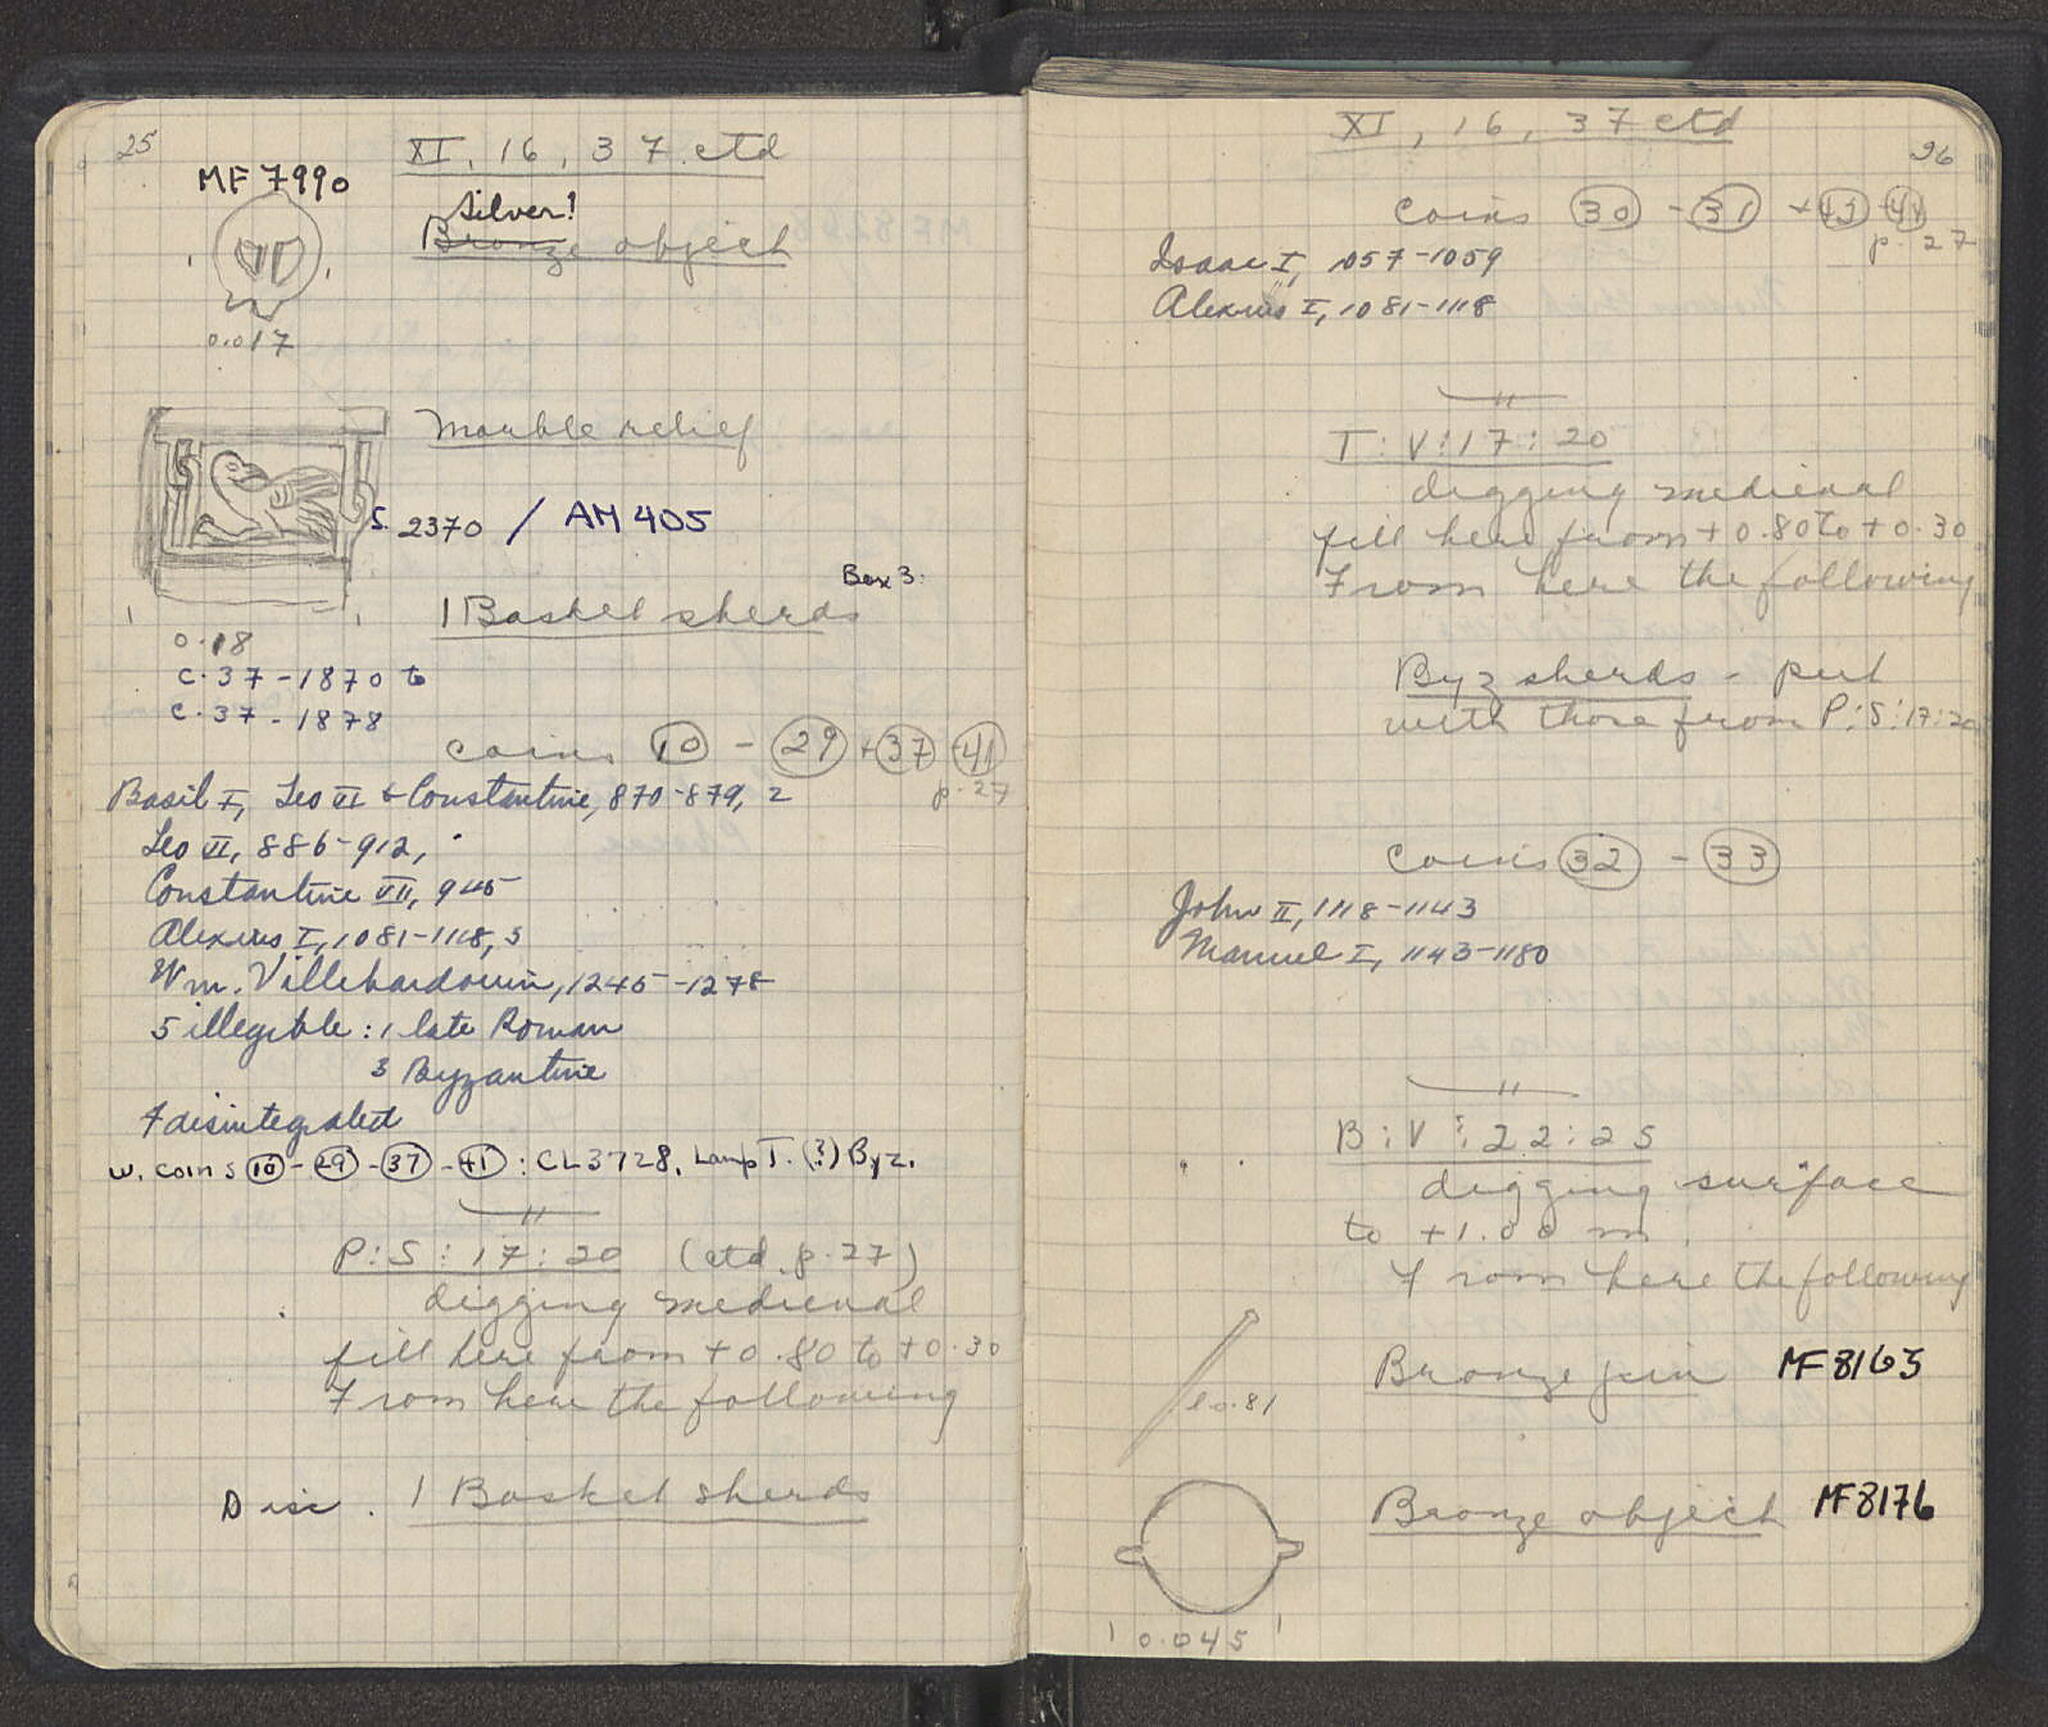 25
XI, 16, 37 ctd
MF 7990
Silver!
Bronze object
0.017
Marble relief
S. 2370 / AM 405
Box 3.
1 Basket sherds
0.18
C. 37 - 1870 to
C. 37 - 1878
coins 10 - 29 + 37 - 41
p. 27
Basil I, Leo VI & Constantine, 870-879, 2
Leo VI, 886-912,
Constantine VII, 945
Alexius I, 1081-1118, 5
Wm. Villehardouin, 1245-1278
5 illegible: 1 late Roman
3 Byzantine
7 disintegrated
w. coins 10 - 29 - 37 - 41 : CL 3728, Lamp T. (?) Byz.
"
P:S:17:20 (ctd. p. 27)
digging medieval
fill here from +0.80 to +0.30
From here the following
Disc. 1 Basket sherds
XI, 16, 37 ctd
26
coins 30 - 31 + 43 44
p. 27
Isaac I, 1057-1059
Alexius I, 1081-1118
"
T:V:17:20
digging medieval
fill here from +0.80 to +0.30
From here the following
Byz sherds - put
with those from P:S:17:20
coins 32 - 33
John II, 1118-1143
Manuel I, 1143-1180
"
B:V:22:25
digging surface
to +1.00 m.
From here the following
Bronze pin MF 8163
l 0.81
Bronze object MF 8176
0.045